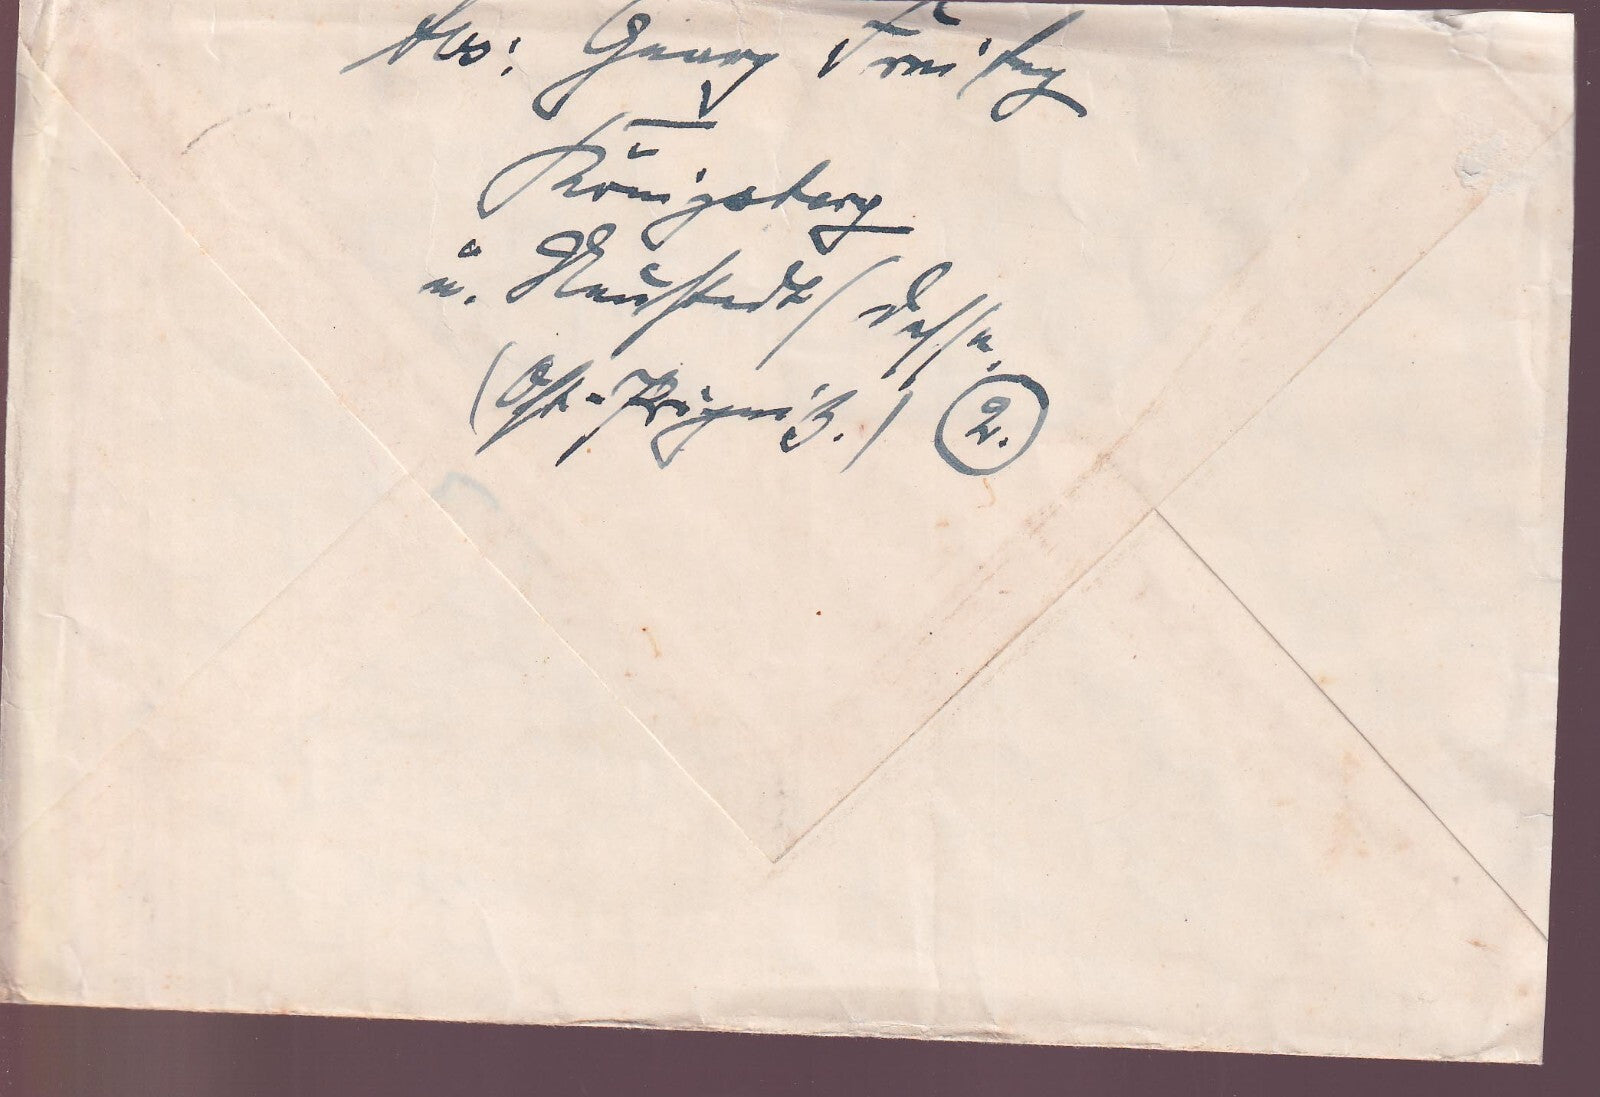 Abs: Georg Freitag
Königsberg
ü. Neustadt / Dosse
(Ost-Prignitz.) 2.